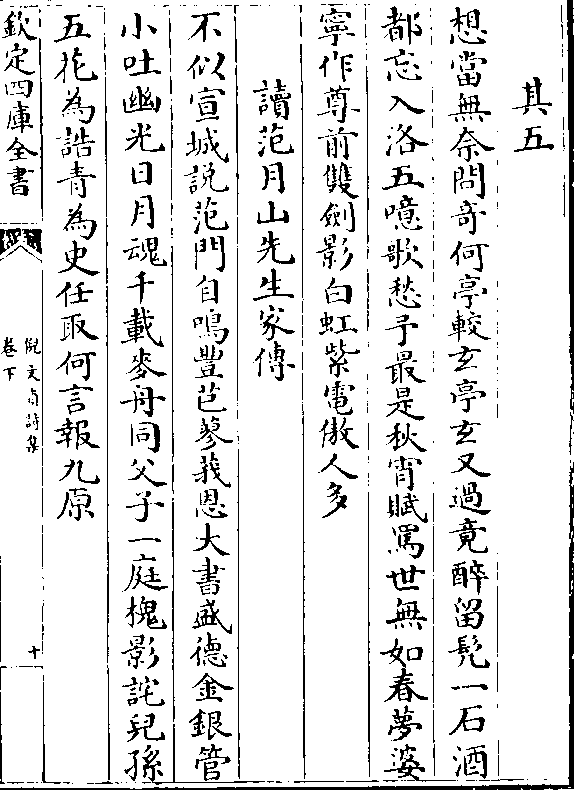 其五
想當無奈問奇何亭較玄亭玄又過竟醉留髠一石酒
都忘入洛五噫歌愁予最是秋宵賦罵世無如春夢婆
寧作尊前雙劍影白虹紫電傲人多
讀范月山先生家傳
不似宣城説范門自鳴豐芑蓼莪恩大書盛德金銀管
小吐幽光日月魂千載麥舟同父子一庭槐影詫兒孫
五花為誥青為史任取何言報九原
欽定四庫全書
倪文貞詩集
卷下
十